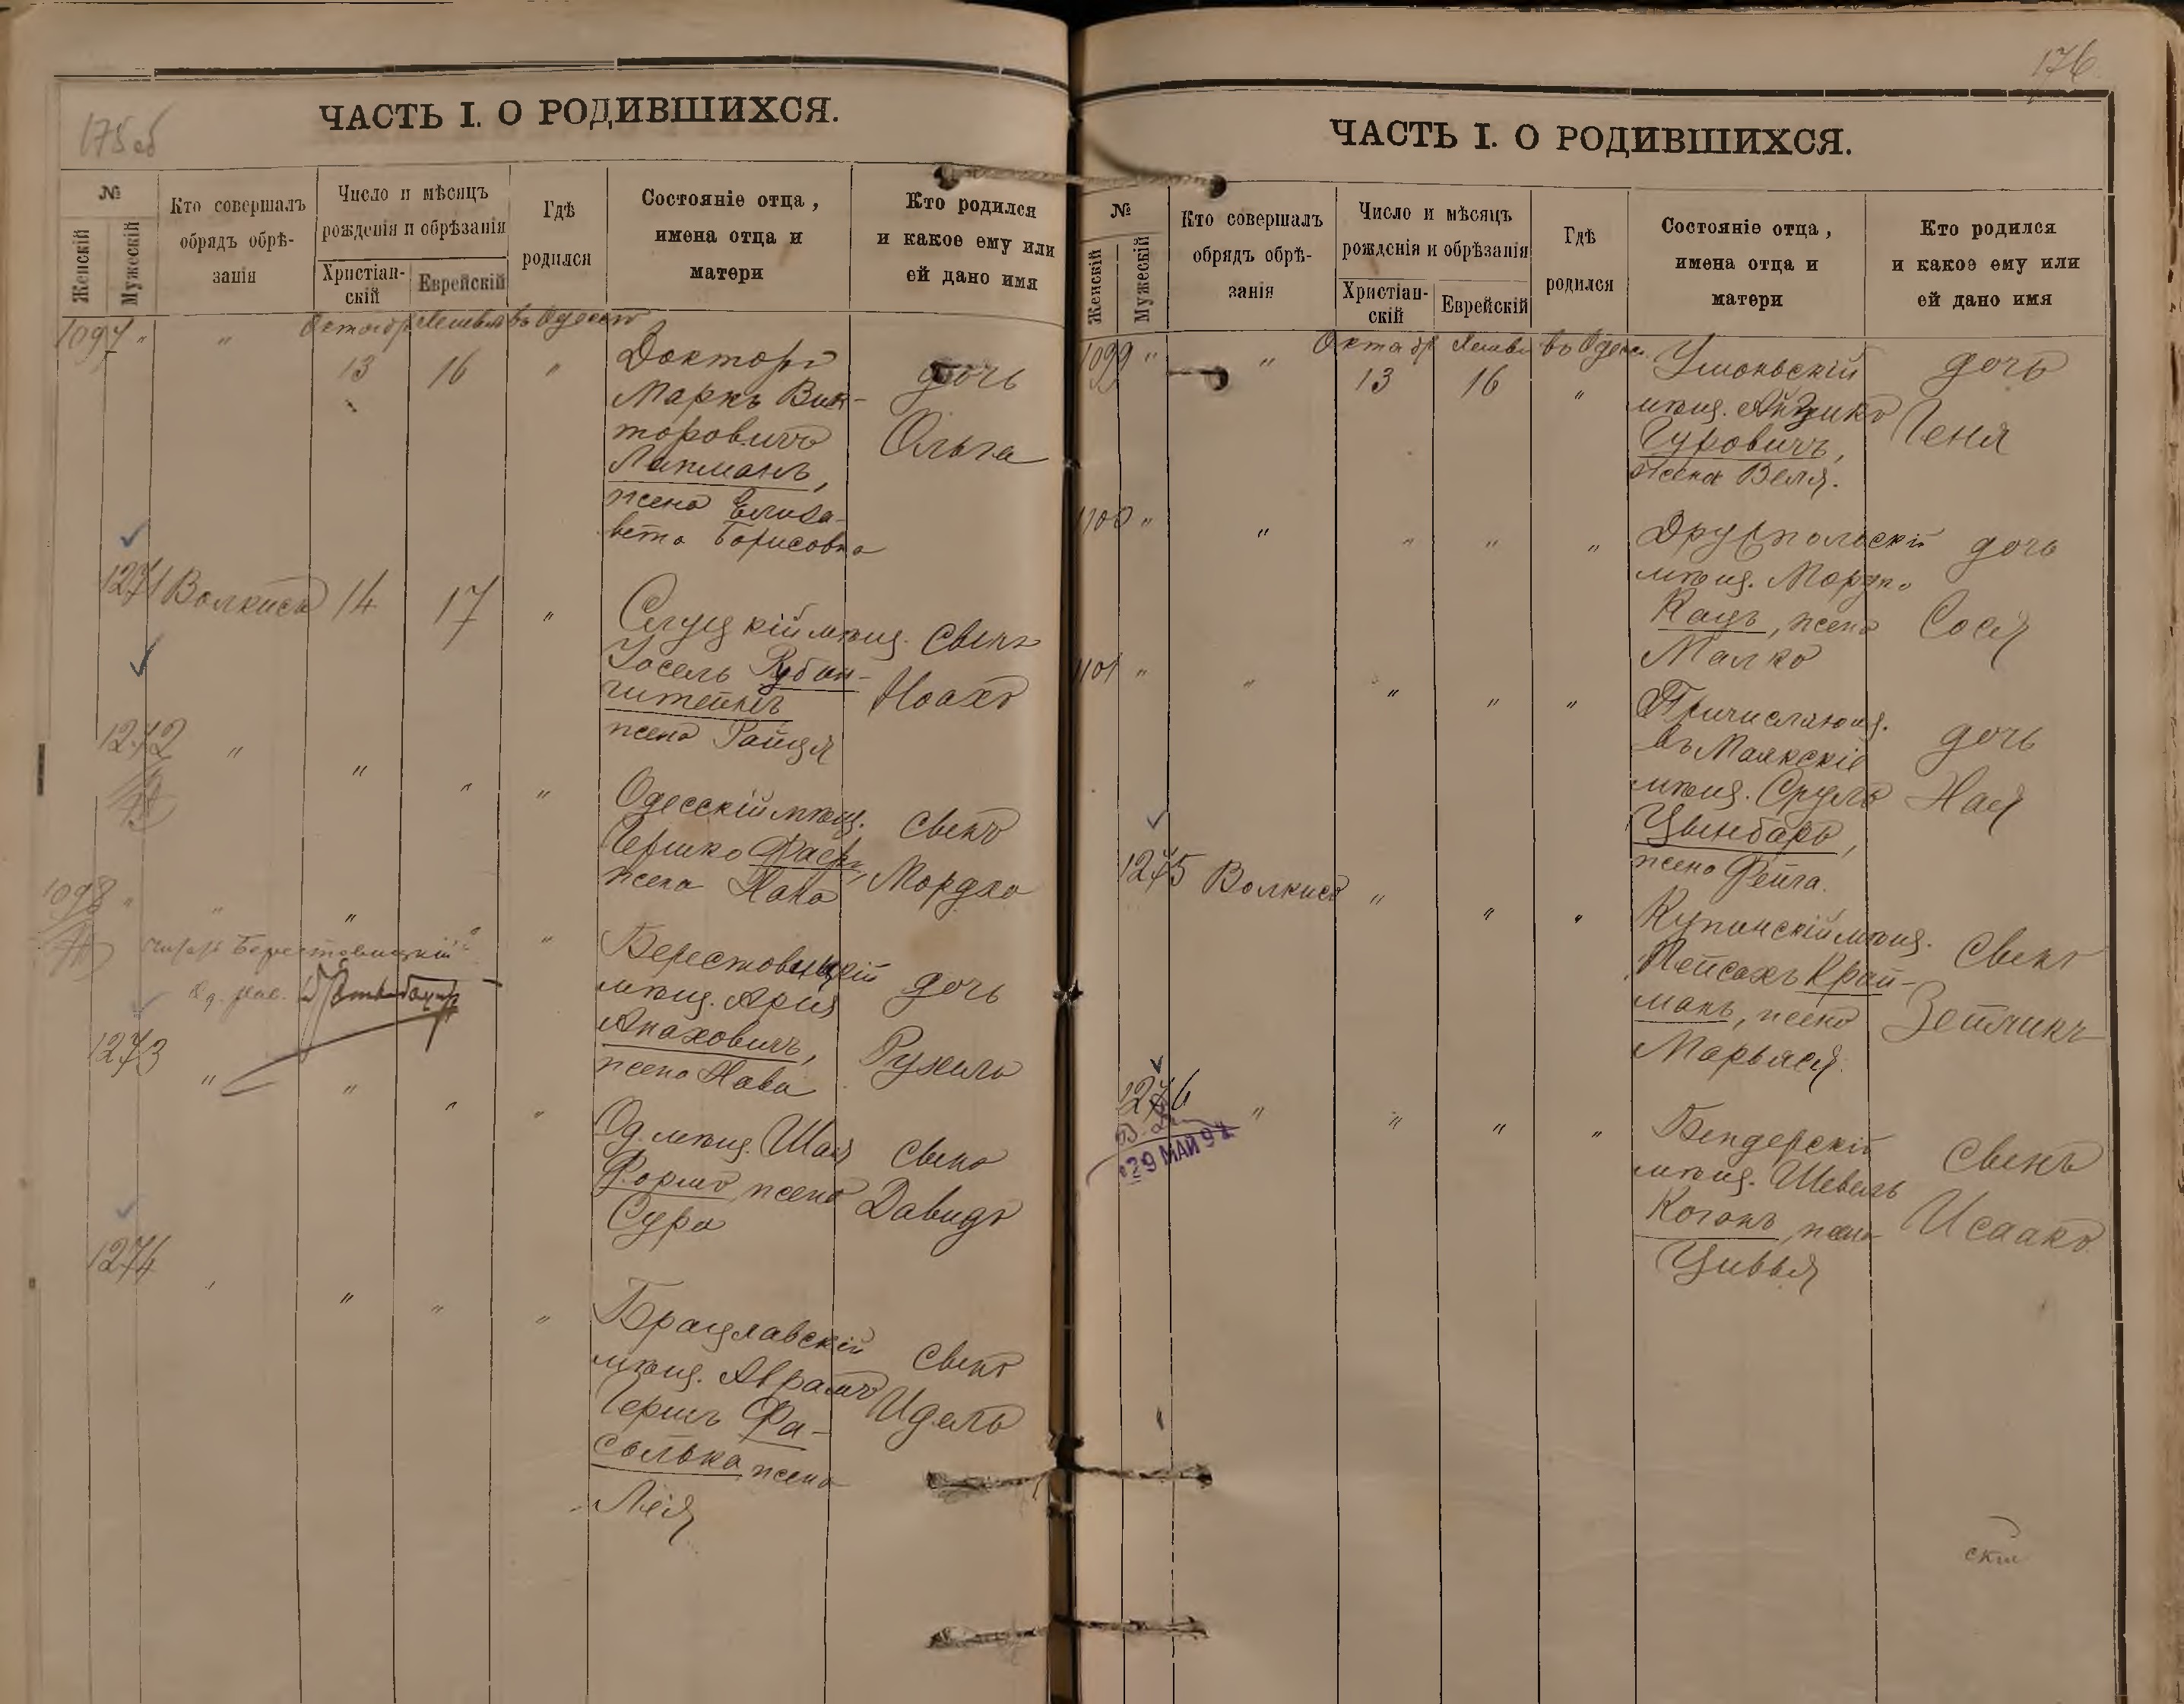 175 об
ЧАСТЬ I. О РОДИВШИХСЯ.
№
Женскій
Мужескій
Кто совершалъ
обрядъ обрѣ-
занія
Число и мѣсяцъ
рожденія и обрѣзанія
Христіан-
скій
Еврейскій
Гдѣ
родился
Состояніе отца,
имена отца и
матери
Кто родился
и какое ему или
ей дано имя
1097 " " 13 16 "
Докторъ
Маркъ Вик-
торовичъ
Липманъ,
жена Елиза-
вета Борисовна
дочь
Ольга
1271 Волкисъ 14 17 "
Слуцкій мѣщ.
Іосель Рубин-
штейнъ
жена Райця
сынъ
Ноахъ
1272 " " " "
Одесскій мѣщ.
Гершко
жена Хана
сынъ
Мордхо
1098 " " " "
читать Берестовицкій
Берестовицкій
мѣщ. Арія
Анаховичъ,
жена Хава
дочь
Рухель
1273 " " " "
Од. мѣщ. Шая
жена
Сура
сынъ
Давидъ
1274 " " " "
Брацлавскій
мѣщ. Аврамъ
Гершъ Фа-
солька жена
Лея
сынъ
Идель
176
ЧАСТЬ I. О РОДИВШИХСЯ.
№
Женскій
Мужескій
Кто совершалъ
обрядъ обрѣ-
занія
Число и мѣсяцъ
рожденія и обрѣзанія
Христіан-
скій
Еврейскій
Гдѣ
родился
Состояніе отца,
имена отца и
матери
Кто родился
и какое ему или
ей дано имя
1099 " " 13 16 "
Уманьскій
мѣщ. Айзикъ
Гуровичъ,
жена Веля.
дочь
Геня
1100 " " " " "
мѣщ.
Кацъ, жена
Малка
дочь
Сося
1101 " " " " "
Причисляющ.
въ Маякскіе
мѣщ. Сруль
Цынбаръ,
жена Фейга.
дочь
Хая
1275 Волкисъ " " "
Купинскій мѣщ.
Пейсахъ Край-
манъ, жена
Марьяся.
сынъ
Зейликъ
1276 " " " "
29 МАЙ 97
Бендерскій
мѣщ. Шевель
Коганъ, жена
Цивья
сынъ
Исаакъ
скій